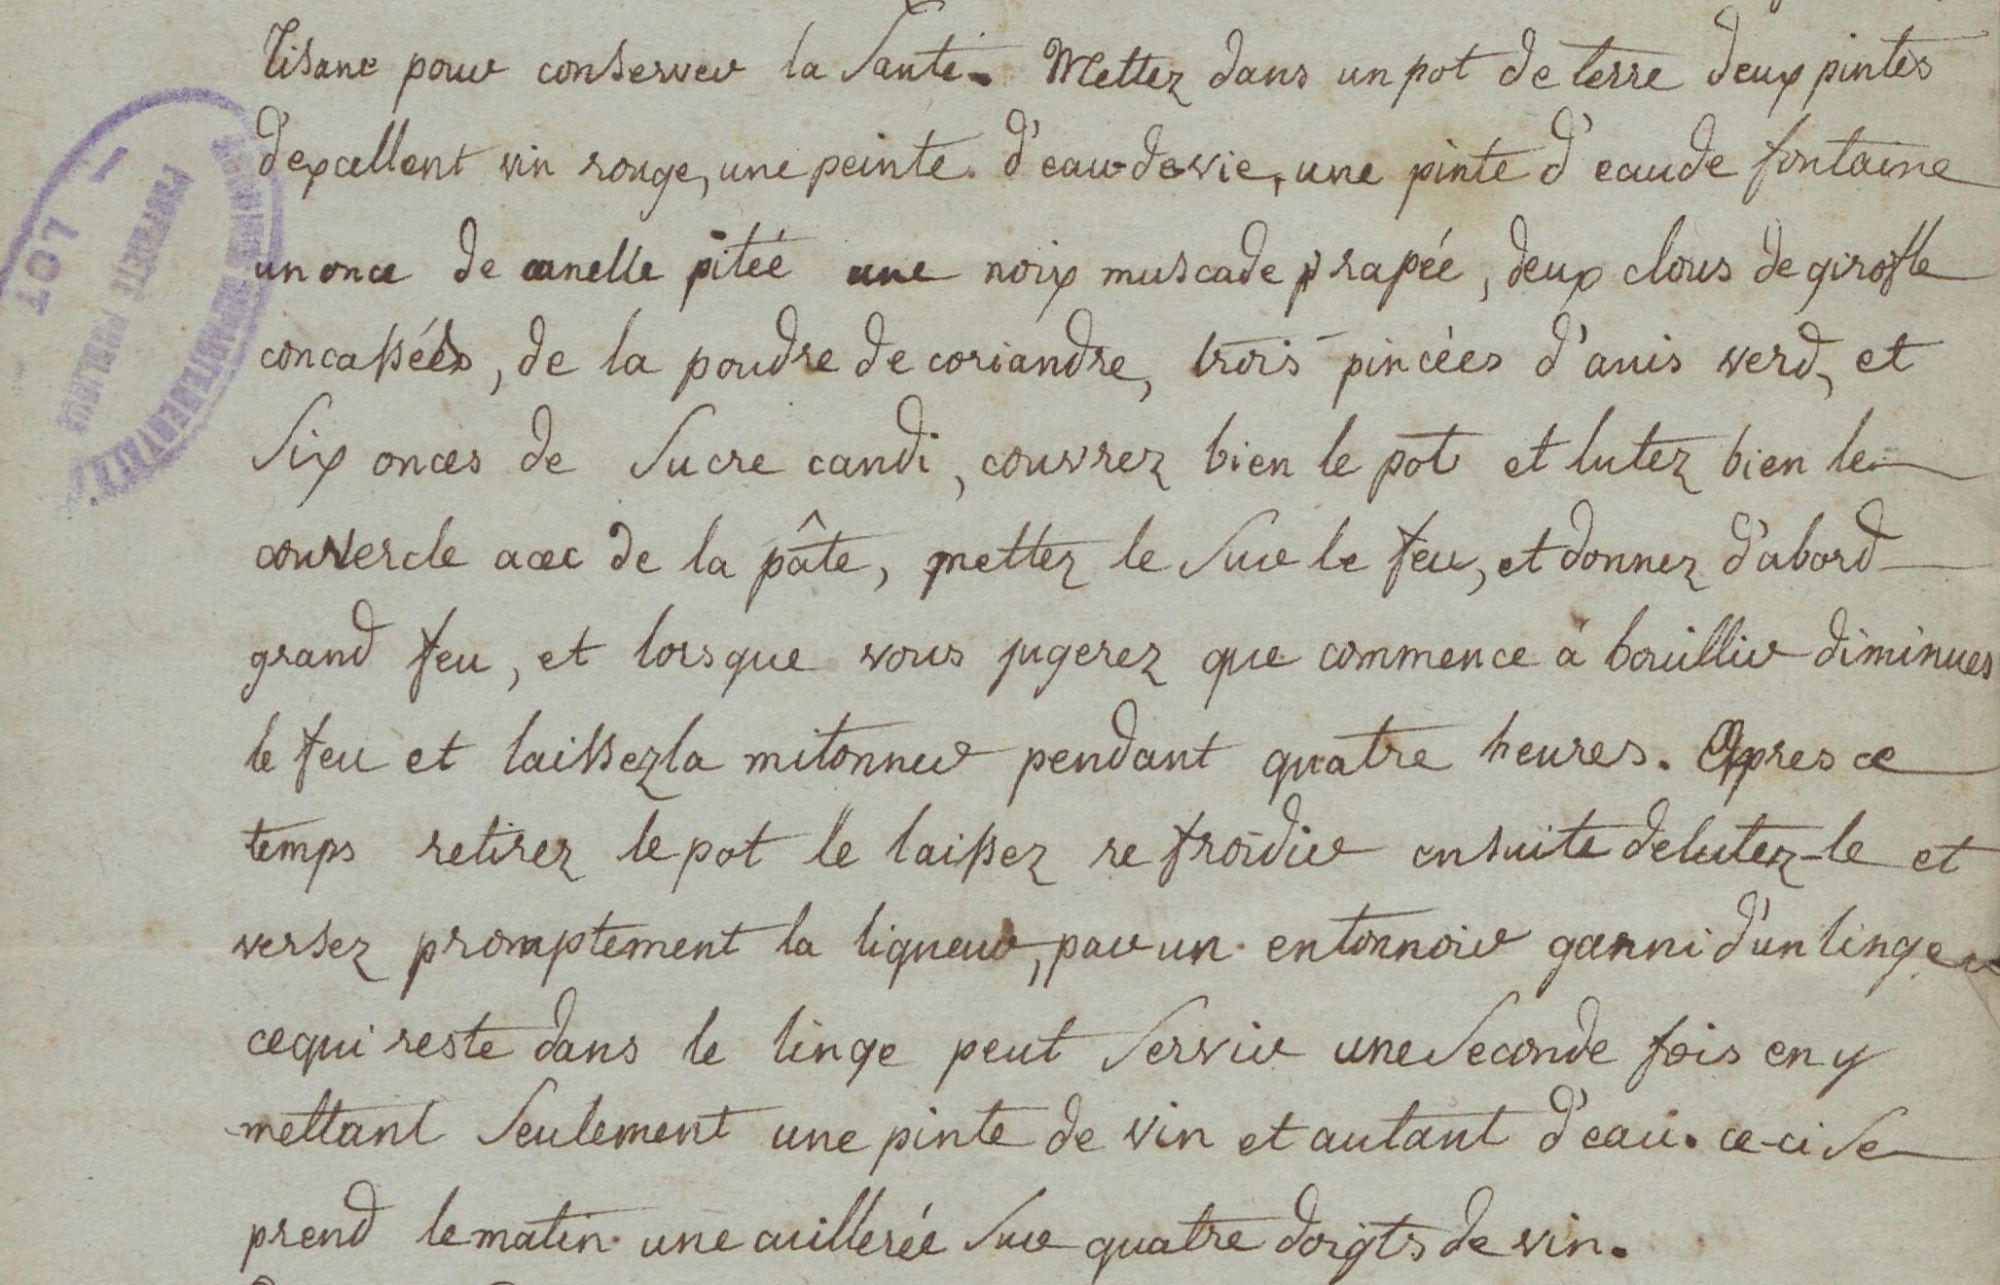 Tisane pour conserver la Santé. Mettez dans un pot de terre deux pintes
d'excellent vin rouge, une peinte d'eau-de-vie, une pinte d'eau de fontaine
un once de canelle pileé une noix muscade rapée, deux clous de girofle
concassées, de la poudre de coriandre, trois pincées d'anis verd, et
Six onces de Sucre candi, couvrez bien le pot et lutez bien le
couvercle avec de la pâte, mettez le Sur le feu, et donnez d'abord
grand feu, et lorsque vous jugerez que commence à bouillir diminues
le feu et laissez la mitonner pendant quatre heures. Apres ce
temps retirez le pot le laissez refroidir ensuite delutez-le et
versez promptement la liqueur, par un entonnoir garni d'un linge
ce qui reste dans le linge peut Servir une Seconde fois en y
mettant Seulement une pinte de vin et autant d'eau. ce-ci Se
prend le matin une cuillereé Sur quatre doigts de vin.
ARCHIVES DÉPARTEMENTALES
PROPRIÉTÉ PUBLIQUE
LOT